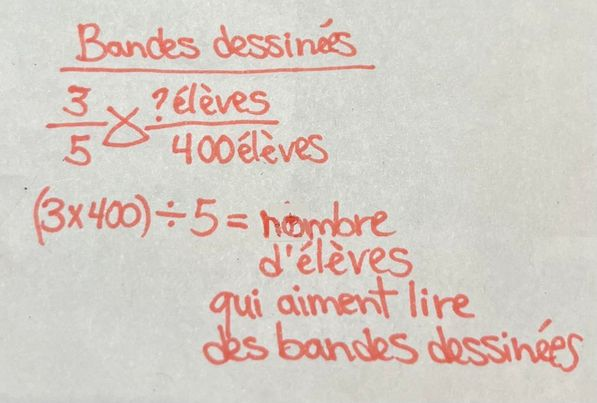 Bandes dessinés
3 ? élèves
5 400 élèves
(3×400)÷5 = nombre
d'élèves
qui aiment lire
des bandes dessinées